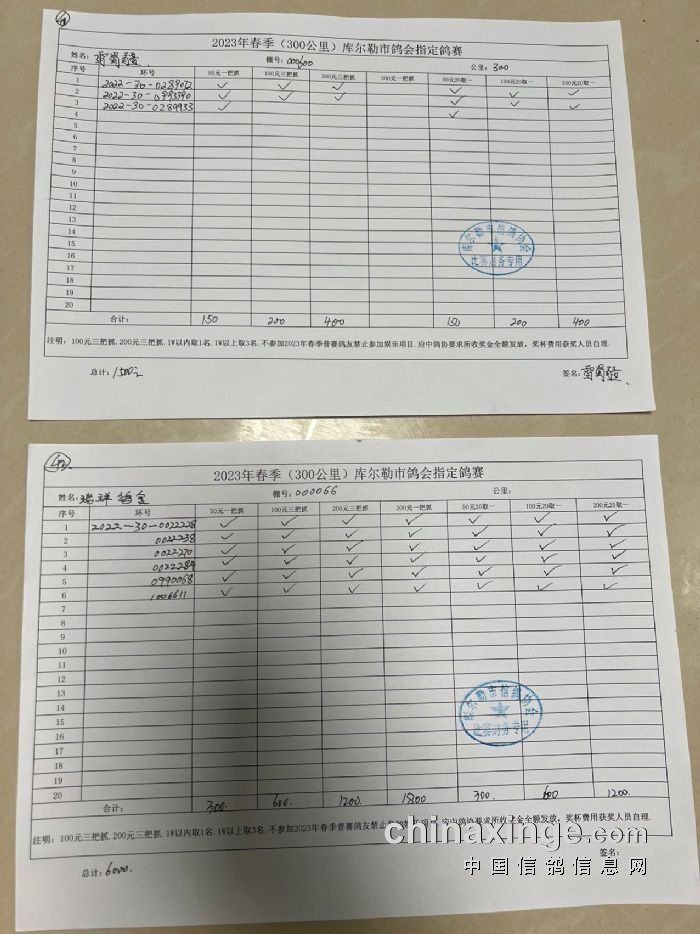 2023年春季（300公里）库尔勒市鸽会指定鸽赛
姓名： 棚号：000600 公里：300
序号 环号 50元一把抓 100元三把抓 200元三把抓 300元一把抓 50元20取一 100元20取一 200元20取一
1 2022-30-0289072 ✓ ✓ ✓ ✓ ✓ ✓
2 2022-30-0993390 ✓ ✓ ✓ ✓ ✓ ✓
3 2022-30-0289933 ✓ ✓
4
5
6
7
8
9
10
11
12
13
14
15
16
17
18
19
20
库尔勒市信鸽协会
比赛财务专用
合计： 150 200 400 150 200 400
注明：100元三把抓.200元三把抓.1W以内取1名.1W以上取3名.不参加2023年春季普赛鸽友禁止参加娱乐项目.应中鸽协要求所收奖金全额发放，奖杯费用获奖人员自理.
总计：1500元 签名：
2023年春季（300公里）库尔勒市鸽会指定鸽赛
姓名：瑞祥鸽舍 棚号：000066 公里：
序号 环号 50元一把抓 100元三把抓 200元三把抓 300元一把抓 50元20取一 100元20取一 200元20取一
1 2022-30-0022228 ✓ ✓ ✓ ✓ ✓ ✓ ✓
2 0022238 ✓ ✓ ✓ ✓ ✓ ✓ ✓
3 0022270 ✓ ✓ ✓ ✓ ✓ ✓ ✓
4 0022284 ✓ ✓ ✓ ✓ ✓ ✓ ✓
5 0990068 ✓ ✓ ✓ ✓ ✓ ✓ ✓
6 1006611 ✓ ✓ ✓ ✓ ✓ ✓ ✓
7
8
9
10
11
12
13
14
15
16
17
18
19
20
库尔勒市信鸽协会
比赛财务专用
合计： 300. 600. 1200. 1800 300. 600 1200.
注明：100元三把抓.200元三把抓.1W以内取1名.1W以上取3名.不参加2023年春季普赛鸽友禁止参加娱乐项目.应中鸽协要求所收奖金全额发放，奖杯费用获奖人员自理.
总计：6000. 签名：
chinaxinge.com
中国信鸽信息网